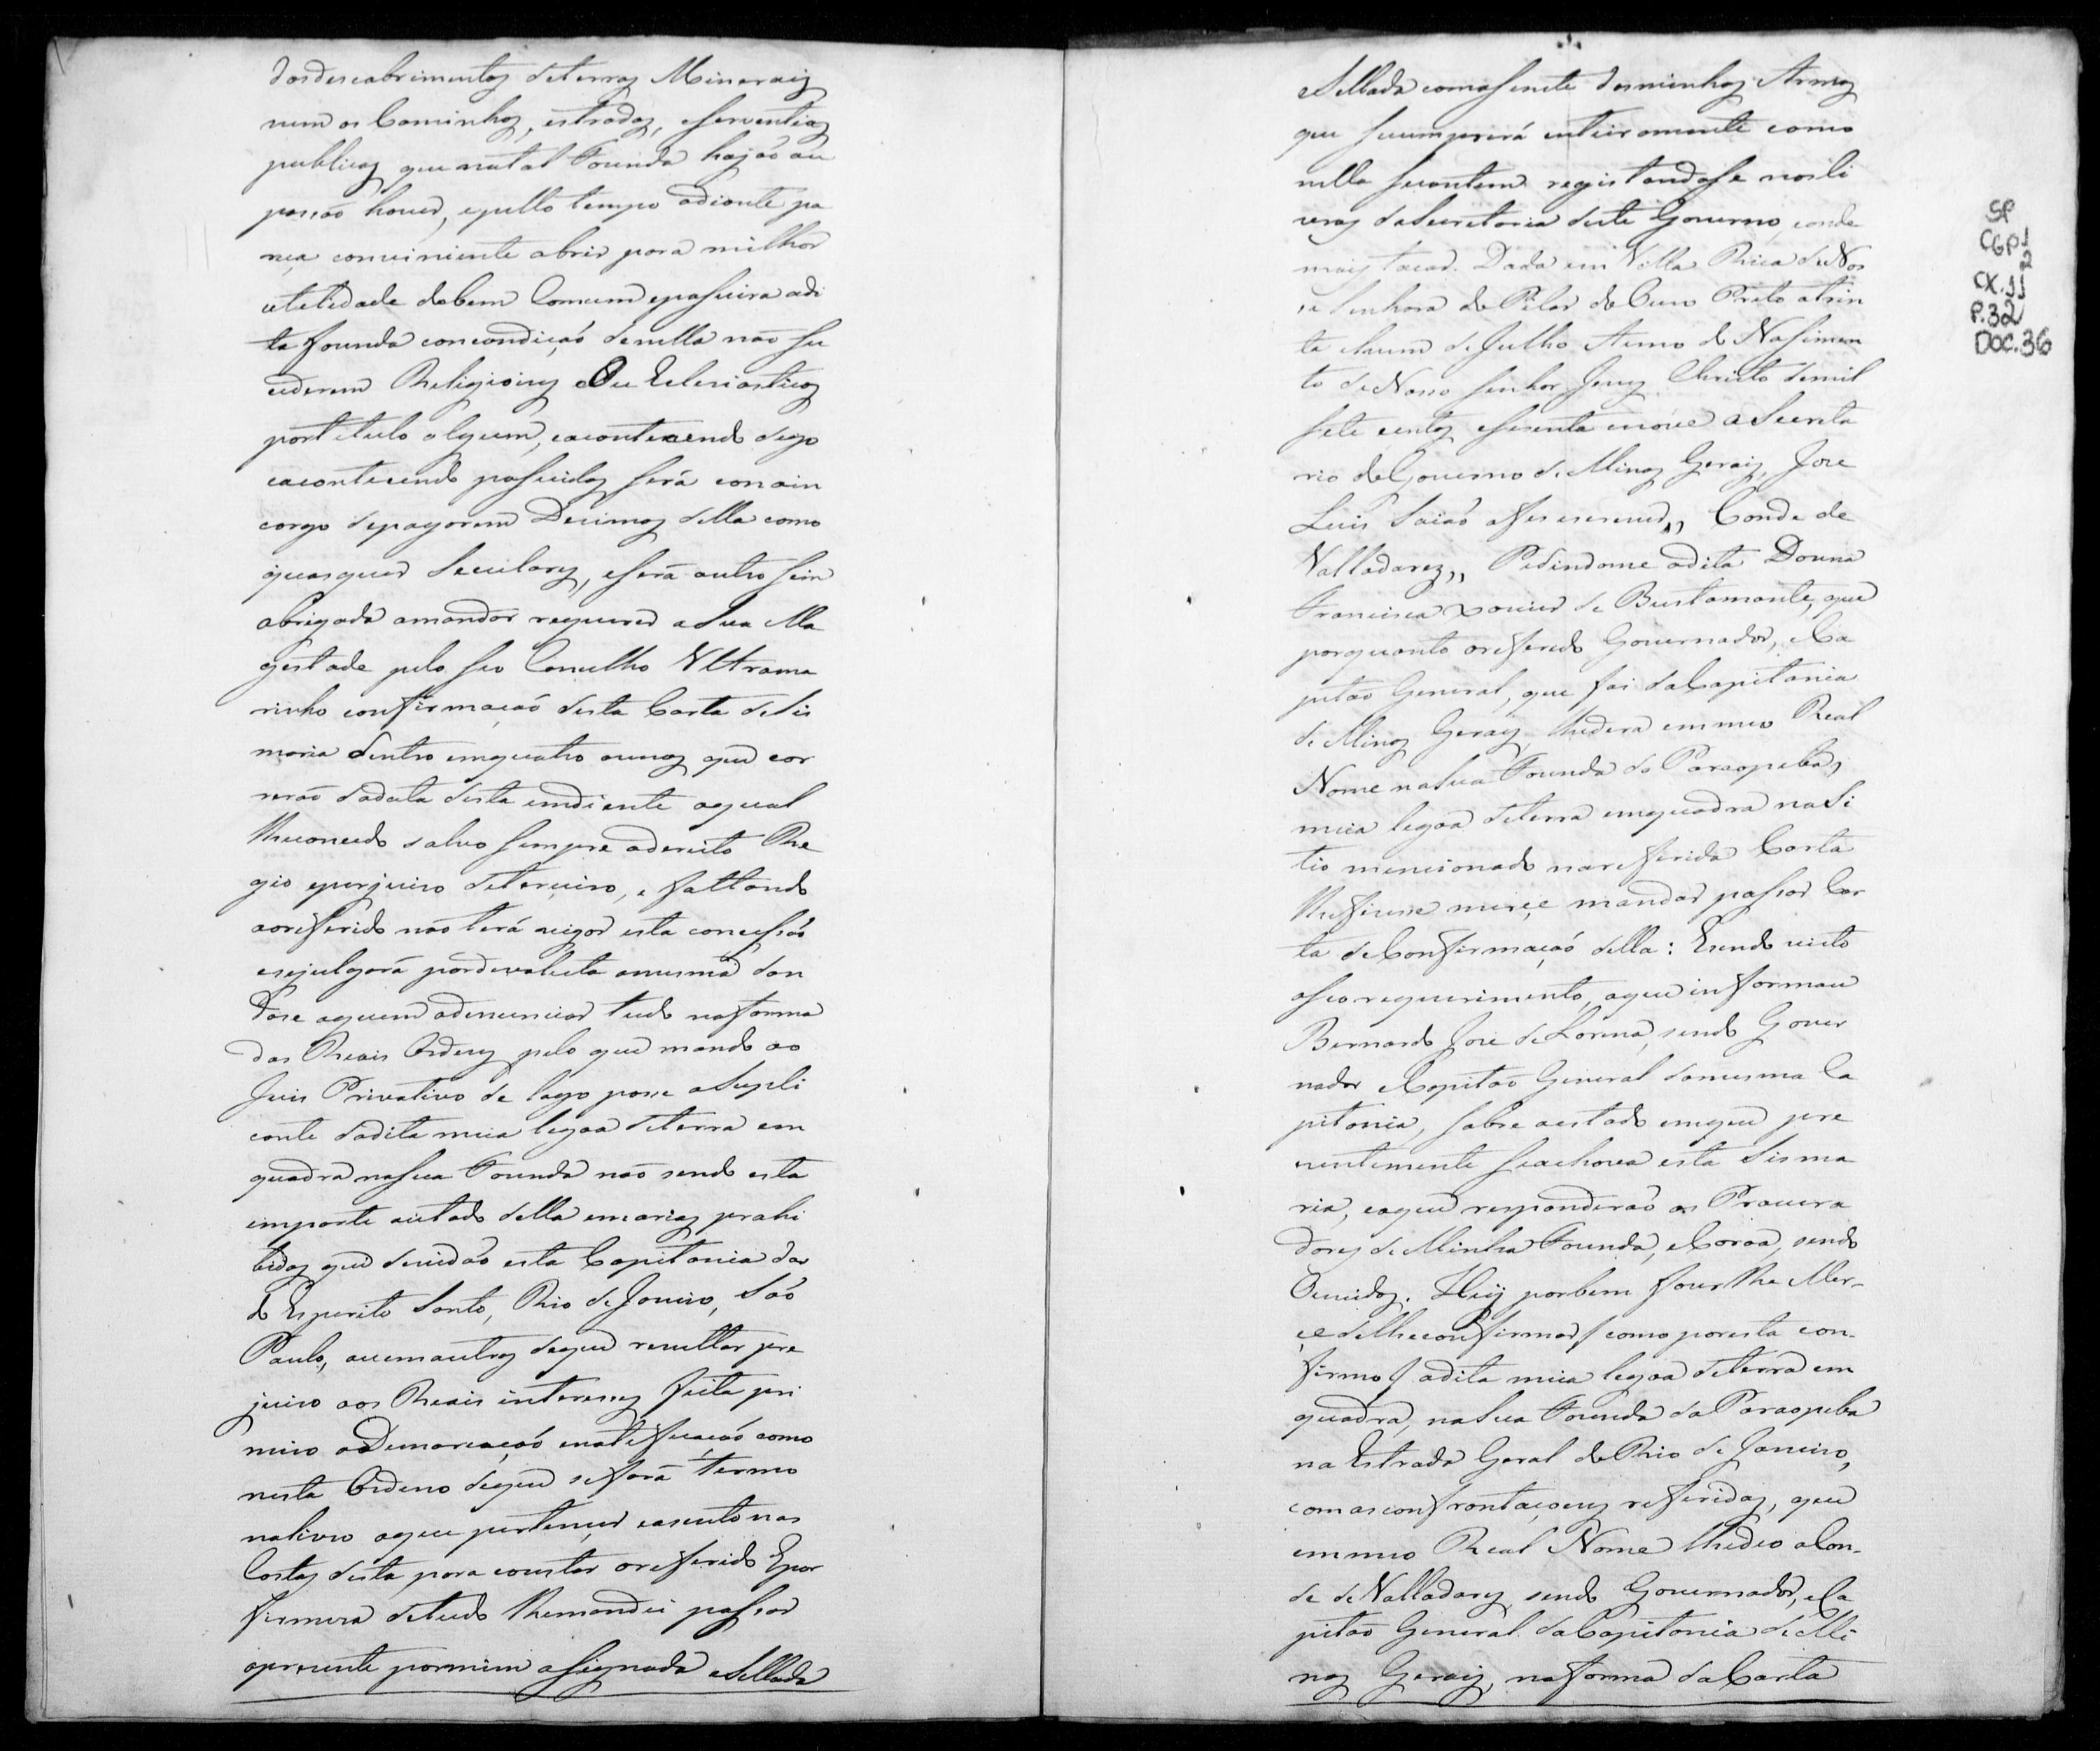 dosdescabrimentos deterras Mineraiz
nem os Caminhos, estradas, eserventias
publicas que natal Fasenda hajaõ ou
possaõ haver, epello tempo adiante pa
reça conviniente abrir para milhor
utelidade dobem Comum epassuira adi
ta fasenda concondiçaõ denella naõ su
cederem Religioins Ou Eclesiasticos
portitulo algum, eacontecendo digo
eacontecendo possuilos será com oin
cargo depagarem Decimas della como
quaisquer Seculares, eserá outro sim
obrigada amandar requerer aSua Ma
gestade pelo seo Conselho Vltrama
rinho confirmaçaõ desta Carta deSis
maria dentro emquatro annos que cor
reraõ dadata desta emdiente aqual
lheconcedo salvo sempre odereito Re
gio eperjuiso deterceiro, e faltando
aoreferido naõ terá vigor esta concessaõ
esejulgará pordevaluta amesma dan
dose aquem adenunciar tudo naforma
das Reais Ordens pelo que mando ao
Juis Privativo de laço posse aSupli
cante dadita meia legoa deterra em
quadra nasua Fasenda naõ sendo esta
emparte outodo della emarias prohi
bidas que devidaõ esta Capitania da
do Esperito Santo, Rio deJaneiro, Saõ
Paulo, ouemoutras deque resultar pre
juiso aos Reais interesses feita pri
meiro aDemarcaçaõ enoteficaçaõ como
nesta Ordeno deque sefará termo
nolivro aque pertencer easentonas
Costas desta para constar oreferido Epor
firmesa detudo lhemandei passar
apresente pormim asignada eSellada
eSellada comosenete dasminhas Armas
que secumprirá enteiramente como
nella secontem registandose nosli
vros daSecretaria deste Governo, eonde
mais tocar. Dada em Villa Rica deNos
sa Senhora do Pilar do Ouro Preto atrin
ta ehum deJulho Anno do Nasimen
to de Nosso Senhor Jesus Christo demil
sete centos esesenta enove oSecreta
rio doGoverno de Minas Geraiz, Jose
Luis Saiaõ afes escrever,, Conde de
Valladarez,, Pedindome adita Donna
Francisca Xavier de Bustamante, que
porquanto oreferido Governador, eCa
pitaõ General, que foi daCapitania
de Minas Geraiz, lhedera emmeo Real
Nome naSua Fasenda da Paraopeba,
meia legoa deterra emquadra noSi
tio mencionado nareferida Carta
lhefisesse merçe mandar passar Car
ta deConfirmaçaõ della: Esendo visto
oseo requerimento, aque informou
Bernardo Jose deLorena, sendo Gover
nador eCapitaõ General damesma Ca
pitania, sobre oestado emque pre
sentemente seachava esta Sisma
ria, eoque responderaõ os Procura
dores de Minha Fasenda, eCoroa, sendo
Ouvidos. Hey porbem faserlhe Mer-
çe delheconfirmar / como poresta con-
firmo / adita meia legoa deterra em
quadra, naSua Fasenda da Paraopeba
na Estrada Geral doRio de Janeiro,
comasconfrontaçoens referidas, que
emmeo Real Nome lhedeo oCon-
de deValladares, sendo Governador, eCa
pitaõ General daCapitania deMi
nas Geraiz, naforma daCarta
SP
CGP1
2
CX.11
P.32
DOC.36